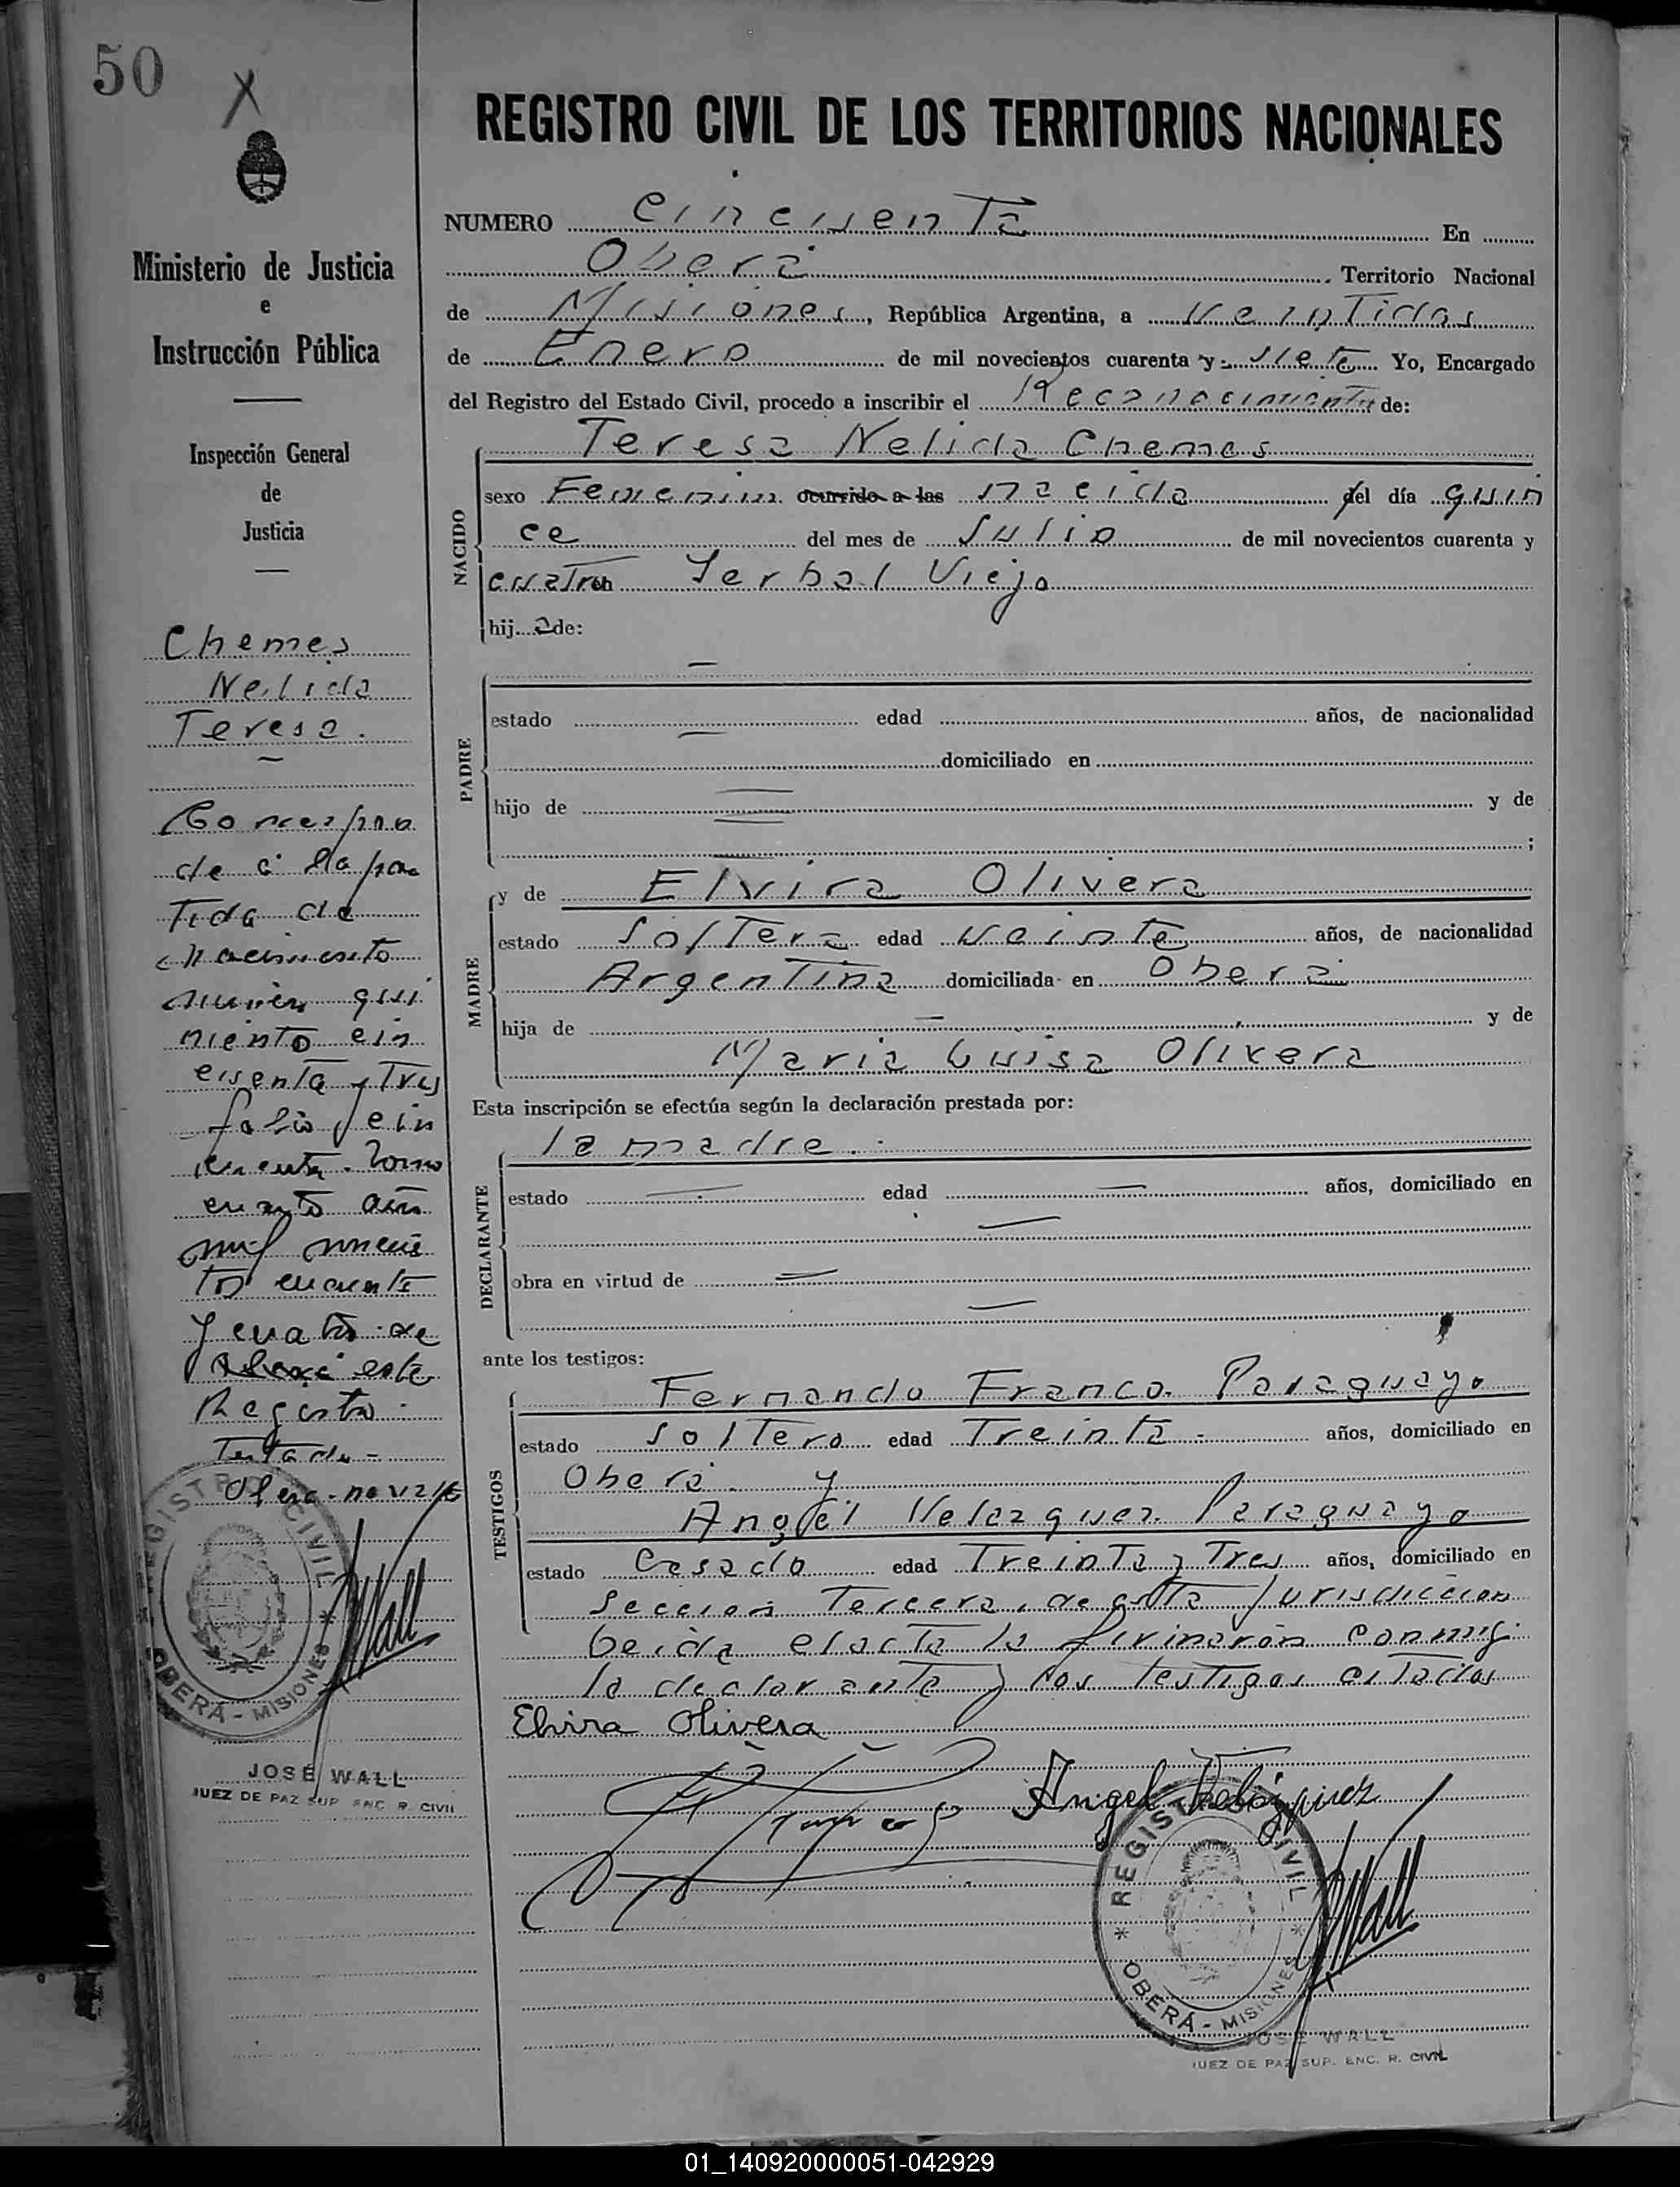 50
X
Ministerio de Justicia
e
Instrucción Pública
Inspección General
de
Justicia
Chemes
Nelida
Teresa.
Correspon
de a la par
tida de
nacimiento
numero qui
niento cin
cuenta y Tres
folio cin
cuenta. Tomo
cuarto año
mil novecien
tos cuarenta
y cuatro de
este
Registro.
Testado-
Obera-no vale
REGISTRO CIVIL
OBERÁ - MISIONES
JOSÉ WALL
JUEZ DE PAZ SUP. ENC. R. CIVIL
REGISTRO CIVIL DE LOS TERRITORIOS NACIONALES
NUMERO cincuenta En
Oberá. Territorio Nacional
de Misiones, República Argentina, a veintidos
de Enero de mil novecientos cuarenta y siete Yo, Encargado
del Registro del Estado Civil, procedo a inscribir el Reconocimiento de:
NACIDO
Teresa Nelida Chemes
sexo Femenino ocurrido a las nacida del día quin
ce del mes de Julio de mil novecientos cuarenta y
cuatro Yerbal Viejo
hij a de:
PADRE
estado edad años, de nacionalidad
domiciliado en
hijo de y de
;
MADRE
y de Elvira Olivera
estado soltera edad veinte años, de nacionalidad
Argentina domiciliada en Oberá
hija de y de
Maria Luisa Olivera
Esta inscripción se efectúa según la declaración prestada por:
DECLARANTE
la madre.
estado edad años, domiciliado en
obra en virtud de
ante los testigos:
TESTIGOS
Fernando Franco. Paraguayo
estado soltero edad Treinta años, domiciliado en
Oberá y
Angel Velazquez. Paraguayo
estado Casado edad Treinta y Tres años, domiciliado en
Seccion Tercera, de esta jurisdiccion
Leida el acta la firmaron conmigo
la declarante y los testigos citados
Elvira Olivera
Angel Velázquez
REGISTRO CIVIL
OBERÁ - MISIONES
JOSÉ WALL
JUEZ DE PAZ SUP. ENC. R. CIVIL
01_140920000051-042929